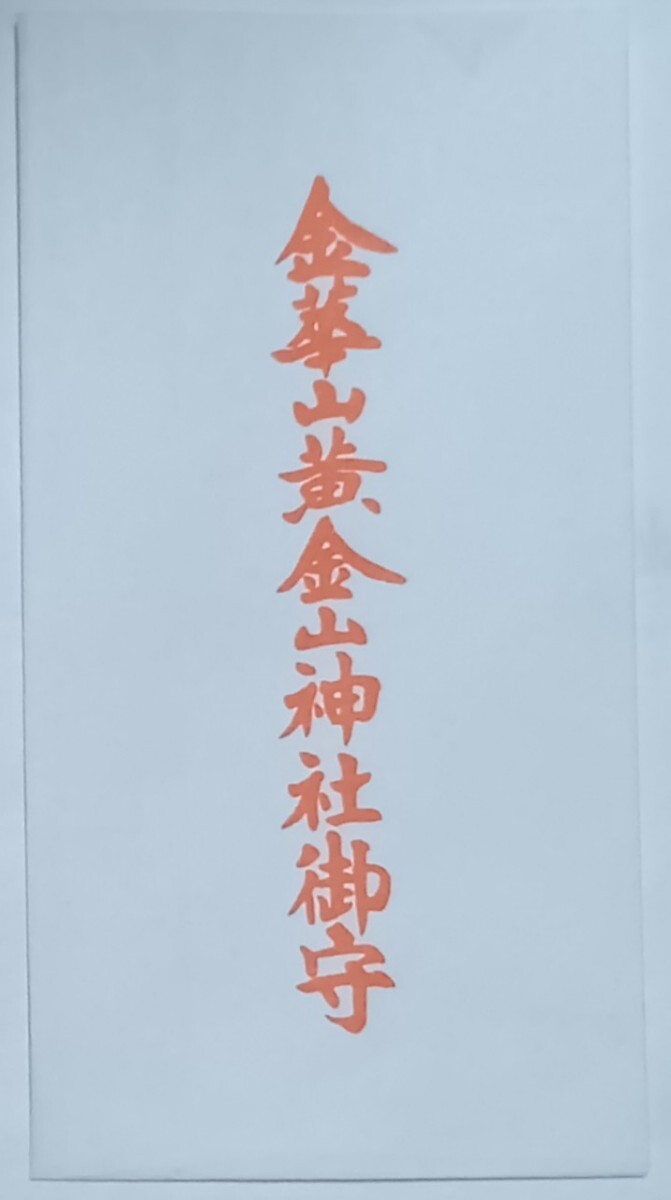 金華山黄金山神社御守